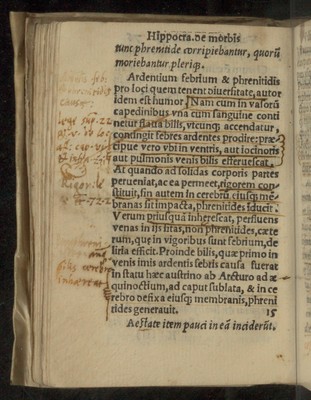 Hippocra. de morbis
tunc phrenitide corripiebantur, quorũ
moriebantur pleriq́;.
Ardentium febrium & phrenitidis
pro loci quem tenent diuersitate, autor
idem est humor. Nam cum in vasorũ
capedinibus vnà cum sanguine conti
netur flaua bilis, vtcunq; accendatur,
contingit febres ardentes prodire: præ
cipue vero vbi in ventris, aut iocinoris
aut pulmonis venis bilis efferuescat.
At quando ad solidas corporis partes
perueniat, ac ea permeet, rigorem con
stituit, sin autem in cerebrũ eiusq; mē
branas sit impacta, phrenitides iducit.
Verum priusquā inhærescat, perfluens
venas in ijs sitas, non phrenitides, cæte
rum, quę in vigoribus sunt febrium, de
liria efficit. Proinde bilis, quæ primo in
venis imis ardentis febris causa fuerat
in statu hæc austrino ab Arcturo ad æ
quinoctium, ad caput sublata, & in ce
rebro defixa eiusq; membranis, phreni
tides generauit. 15
Aestate item pauci in eā inciderūt.